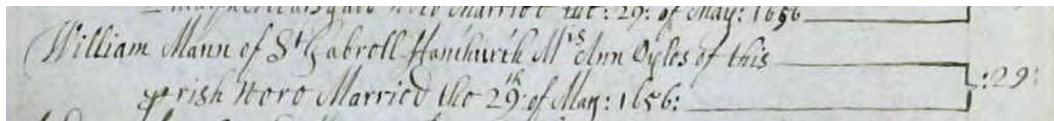 were Married the: 29: of May: 1656
William Mann of St Gabroll Fanchurch Mrs Ann Oyles of this
prish were Married the 29th of May: 1656: :29: